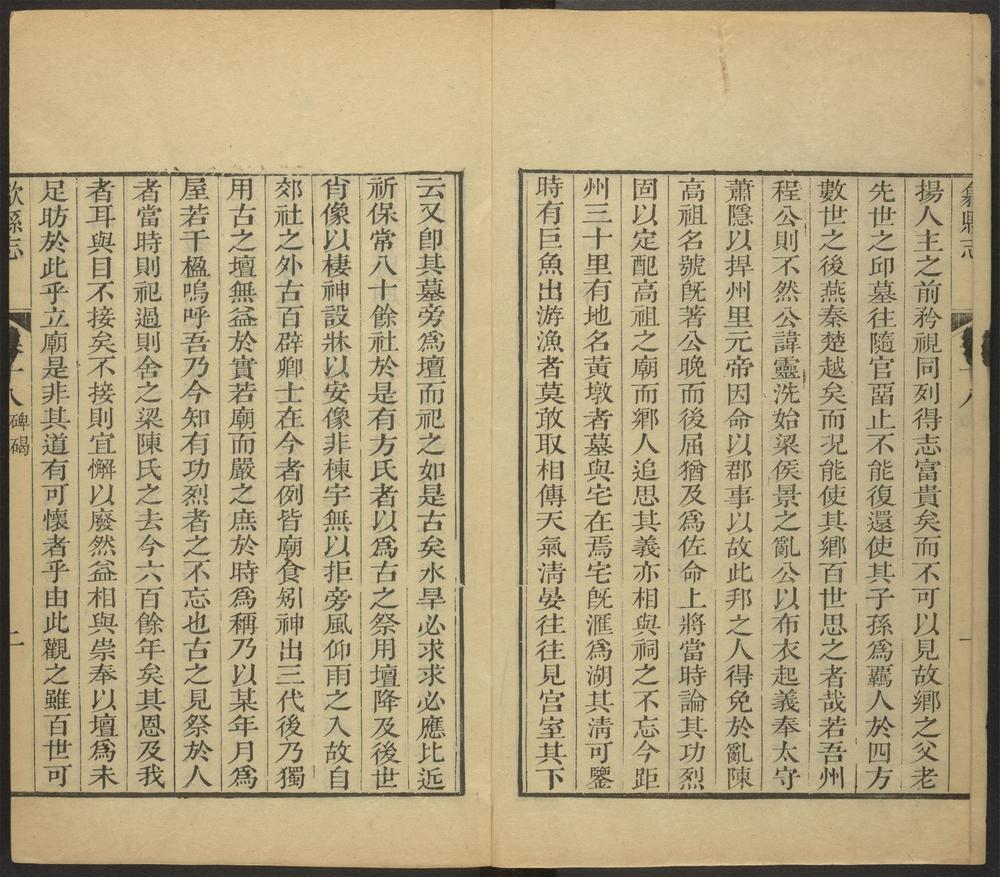 歙縣志
揚人主之前矜視同列得志富貴矣而不可以見故鄉之父老
先世之邱墓往隨官畱止不能復還使其子孫爲羈人於四方
數世之後燕秦楚越矣而况能使其鄉百世思之者哉若吾州
程公則不然公諱靈洗始梁侯景之亂公以布衣起義奉太守
蕭隱以捍州里元帝因命以郡事以故此邦之人得免於亂陳
高祖名號旣著公晚而後屈猶及爲佐命上將當時論其功烈
固以定配高祖之廟而鄉人追思其義亦相與祠之不忘今距
州三十里有地名黃墩者墓與宅在焉宅旣滙爲湖其淸可鑒
時有巨魚出游漁者莫敢取相傳天氣淸晏往往見宮室其下
云又卽其墓旁爲壇而祀之如是古矣水旱必求求必應比近
祈保常八十餘社於是有方氏者以爲古之祭用壇降及後世
肖像以棲神設牀以安像非棟宇無以拒旁風仰雨之入故自
郊社之外古百辟卿士在今者例皆廟食矧神出三代後乃獨
用古之壇無益於實若廟而嚴之庶於時爲稱乃以某年月爲
屋若干楹嗚呼吾乃今知有功烈者之不忘也古之見祭於人
者當時則祀過則舍之梁陳氏之去今六百餘年矣其恩及我
者耳與目不接矣不接則宜懈以廢然益相與崇奉以壇爲未
足昉於此乎立廟是非其道有可懷者乎由此觀之雖百世可
歙縣志 卷十八 碑碣 二